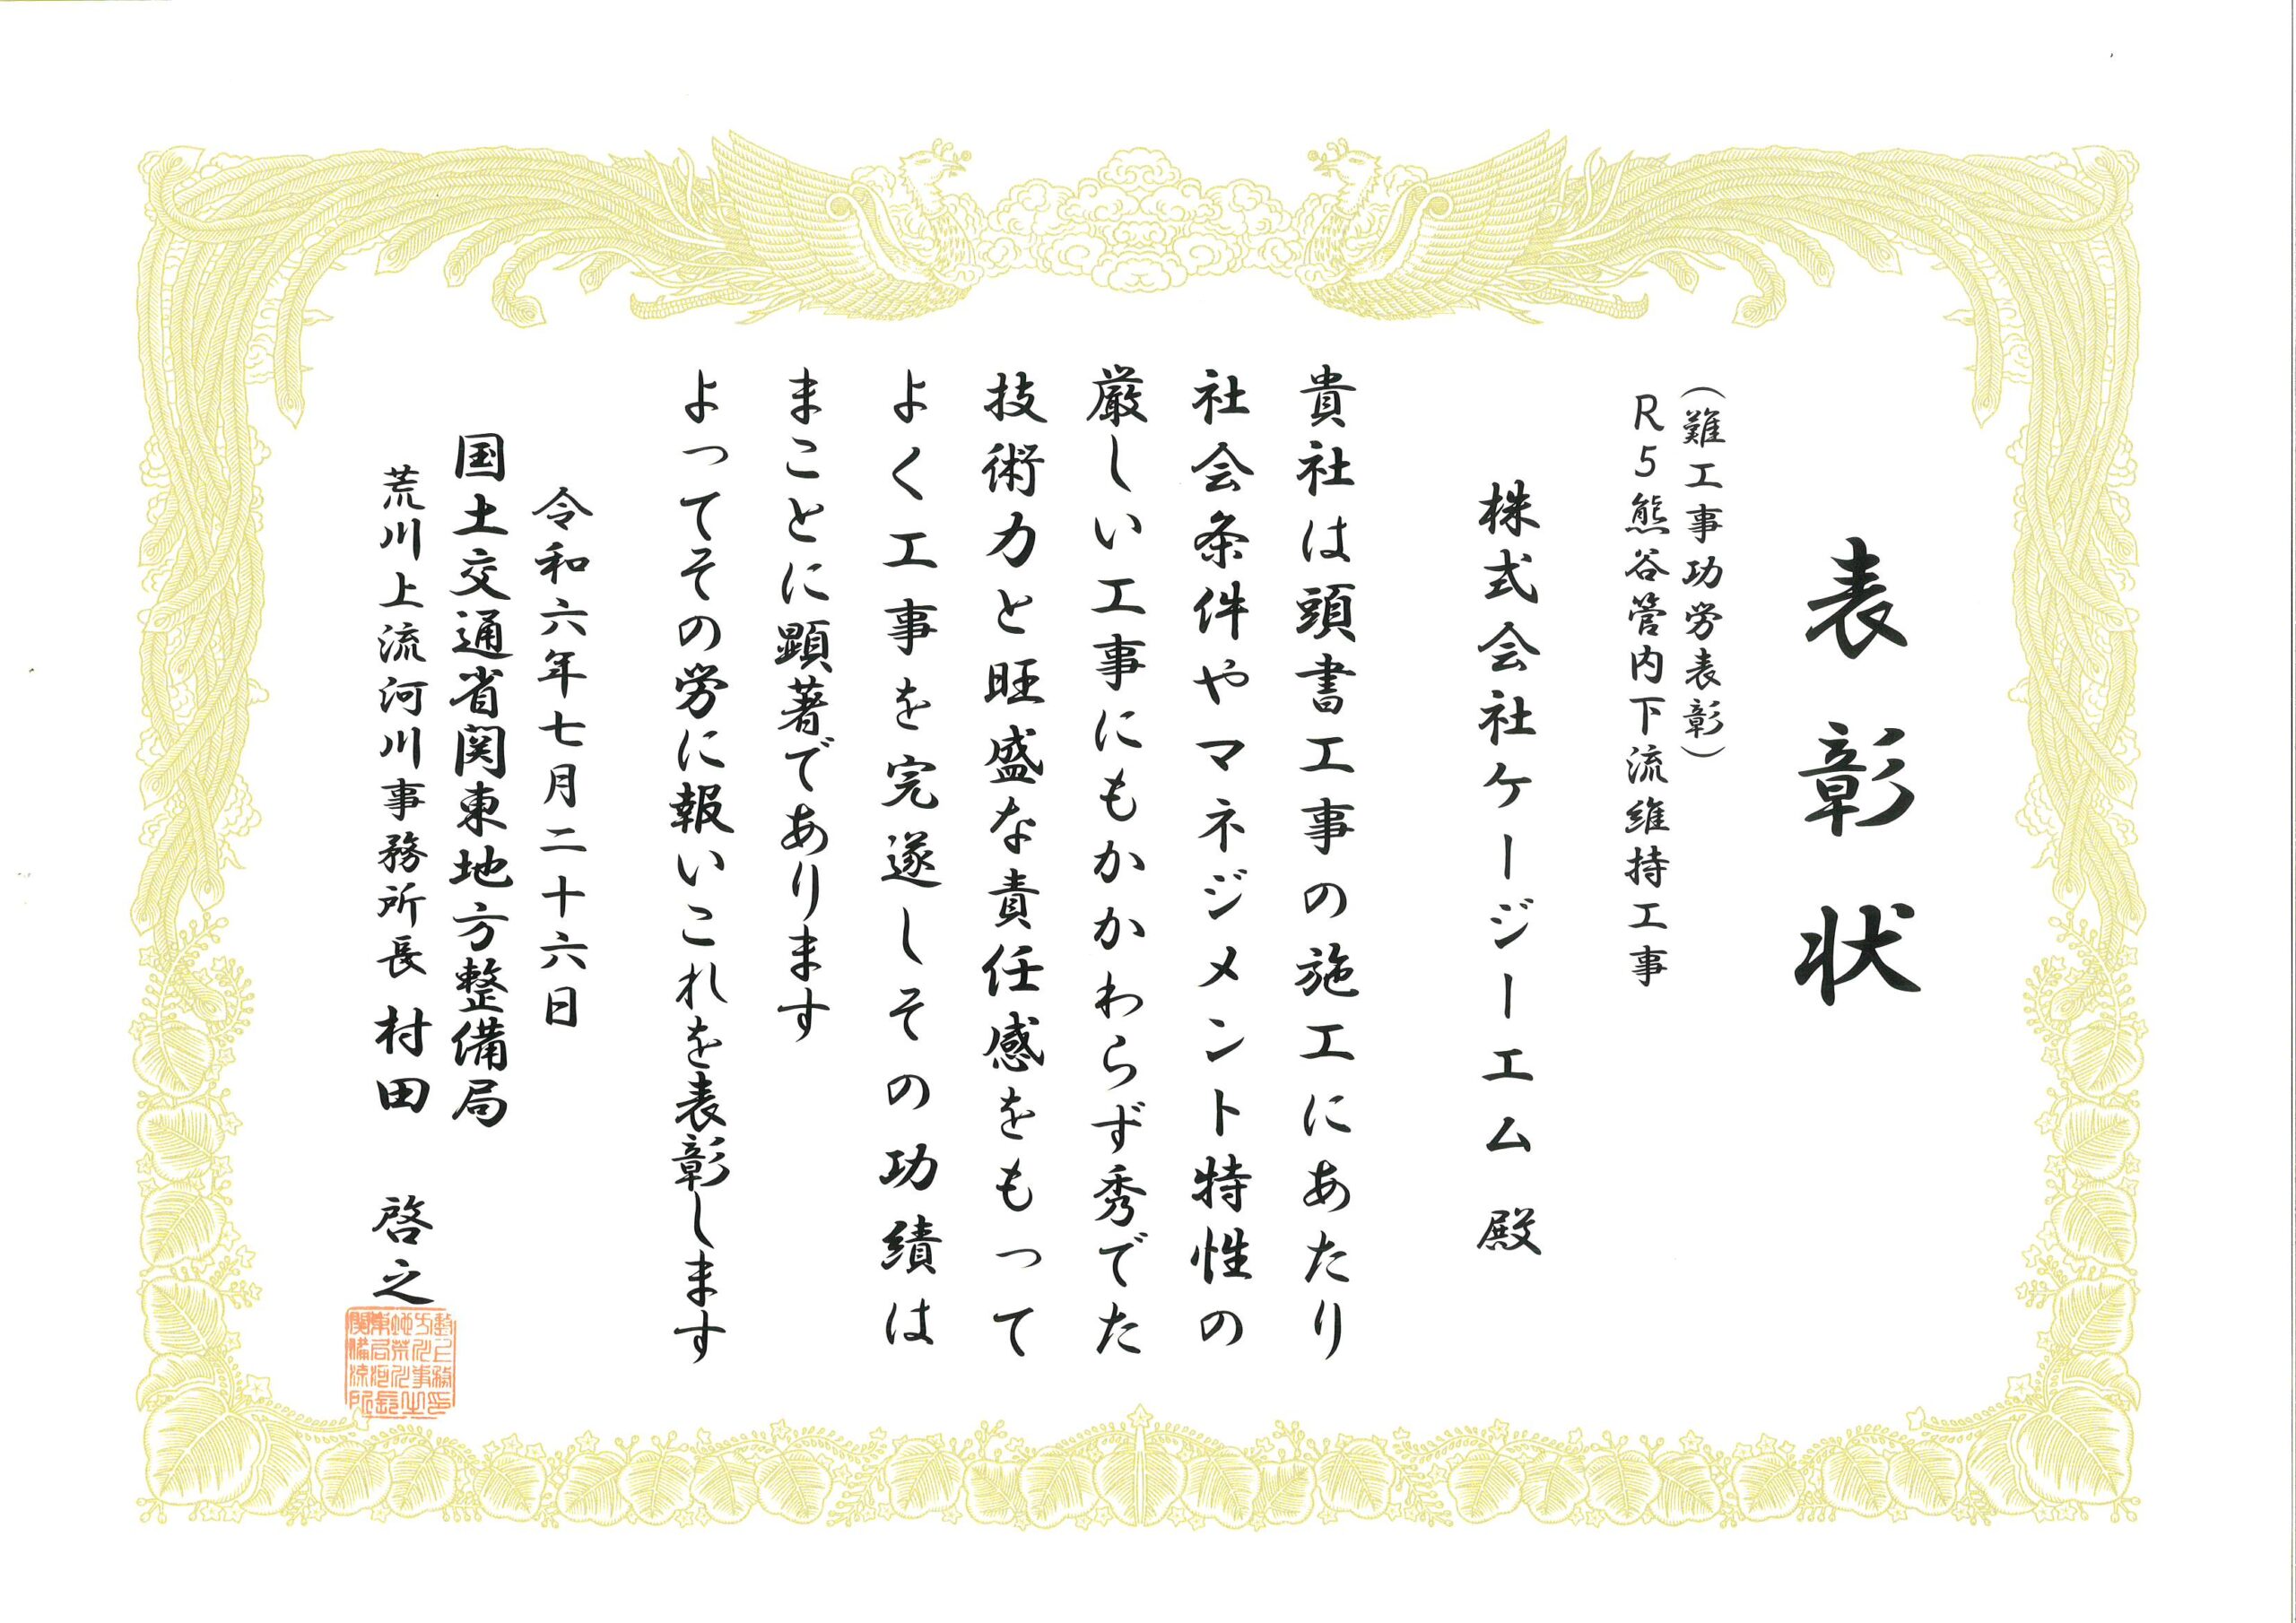 表彰状
（難工事功労表彰）
R5熊谷管内下流維持工事
株式会社ケージーエム 殿
貴社は頭書工事の施工にあたり
社会条件やマネジメント特性の
厳しい工事にもかかわらず秀でた
技術力と旺盛な責任感をもって
よく工事を完遂しその功績は
まことに顕著であります
よってその労に報いこれを表彰します
令和六年七月二十六日
国土交通省関東地方整備局
荒川上流河川事務所長 村田 啓之